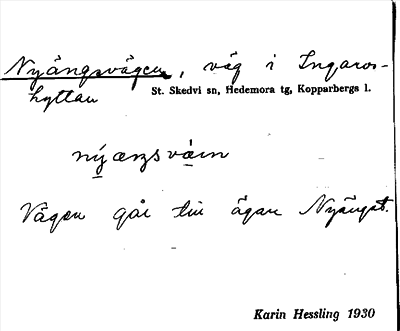 Nyängsvägen, väg i Ingarvs-
hyttan
St. Skedvi sn, Hedemora tg, Kopparbergs l.
nýæŋsvä̀en
Vägen går till ägan Nyänget.
Karin Hessling 1930